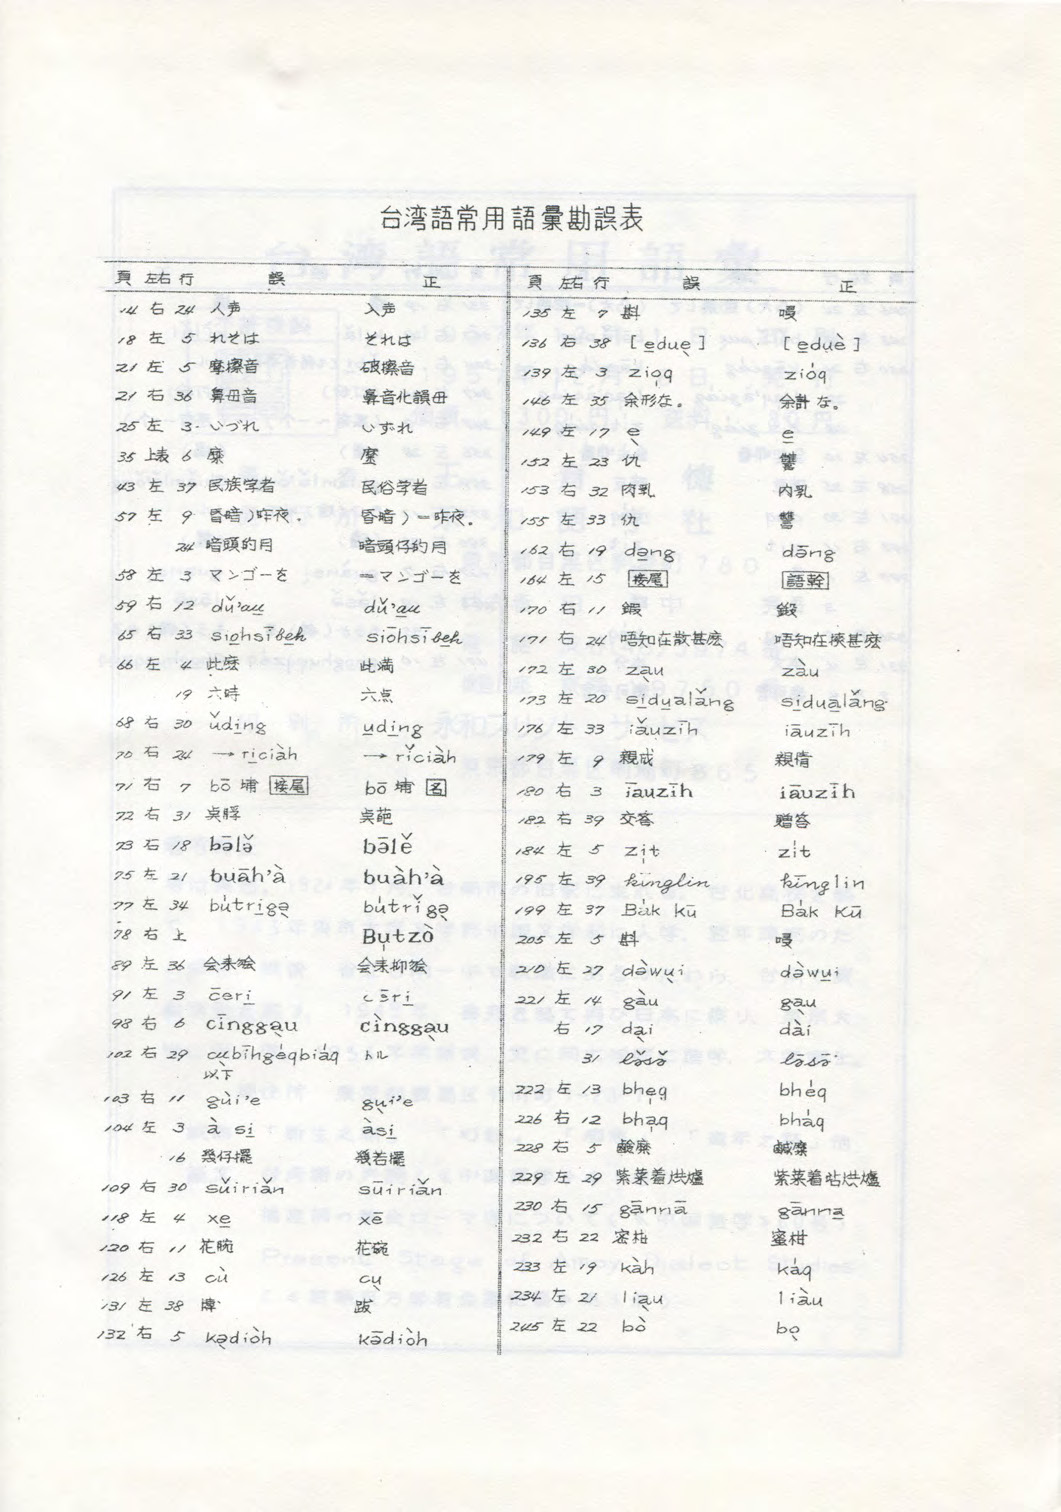 台湾語常用語彙勘誤表
頁 左右 行 誤 正
14 右 24 人声 入声
18 左 5 れそは それは
21 左 5 摩擦音 破擦音
21 右 36 鼻母音 鼻音化韻母
25 左 3 いづれ いずれ
35 上表 6 糜 麼
43 左 37 民族学者 民俗学者
57 左 9 昏暗)昨夜. 昏暗)=昨夜.
24 暗頭的月 暗頭仔的月
58 左 3 マンゴーを =マンゴーを
59 右 12 dǔ'a̱u̱ dǔ'a̱u̱
65 右 33 si̱o̱hsīḇe̱ẖ siōhsīḇe̱ẖ
66 左 4 此麼 此満
19 六時 六点
68 右 30 ǔdi̱ng u̱di̱ng
70 右 24 →ri̱ciàh →rǐciàh
71 右 7 bō 埔 接尾 bō 埔 名
72 右 31
73 右 18 bālə̌ bālě
75 左 21 buāh'à buàh'à
77 左 34 bu̍tri̱gə̱ bu̍trǐgə̱
78 右 上 Bu̍tzò
89 左 36 会来唸 会来抑唸
91 左 3 c̄eri̱
98 右 6 cīngga̱u cìngga̱u
102 右 29 cu̱bīhgéqbiáq トル
以下
103 右 11 gùi'e gu̱i'e
104 左 3 à si̱ àsi̱
16 幾仔擺 幾若擺
109 右 30 sǔiriǎn sūiriǎn
118 左 4 xe̱ xē
120 右 11 花腕 花碗
126 左 13 cù cu̱
131 左 38 牌 跋
132 右 5 kə̱diòh kādiòh
頁 左右 行 誤 正
135 左 7 斟 嗄
136 右 38 [e̱due̱] [e̱duè]
139 左 3 zio̱q zio̍q
146 左 35 余形な。 余計な。
149 左 17 e̱ e̱
152 左 23 仇 讐
153 右 32 肉乳 内乳
155 左 33 仇 讐
162 右 19 də̱ng dāng
164 左 15 接尾 語幹
170 右 11 鍜 鍛
171 右 24 唔知在散甚麼 唔知在捒甚麼
172 左 30 za̱u zàu
173 左 20 si̱du̱alǎng si̱dua̱lǎng
176 左 33 iǎuzīh iāuzīh
179 左 9 親戒 親情
180 右 3 īauzīh iāuzīh
182 右 39 交答 贈答
184 左 5 zi̱t zi̍t
195 左 39 kīnglin kīnglin
199 左 37 Ba̍k kū Ba̍k Kū
205 左 5 斟 嗄
210 左 27 dàwu̱i dàwui̱
221 左 14 gàu ga̱u
右 17 da̱i dài
31 lə̌sə̌ lə̄sə̄
222 左 13 bhe̱q bhe̍q
226 右 12 bha̱q bha̍q
228 右 5 鹼糜 鹹糜
229 左 29 紫菜着烘爐 紫菜着站烘爐
230 右 15 gānnā gānna̱
232 右 22 密柑 蜜柑
233 左 19 kàh ka̍q
234 左 21 lia̱u liàu
245 左 22 bò bo̱